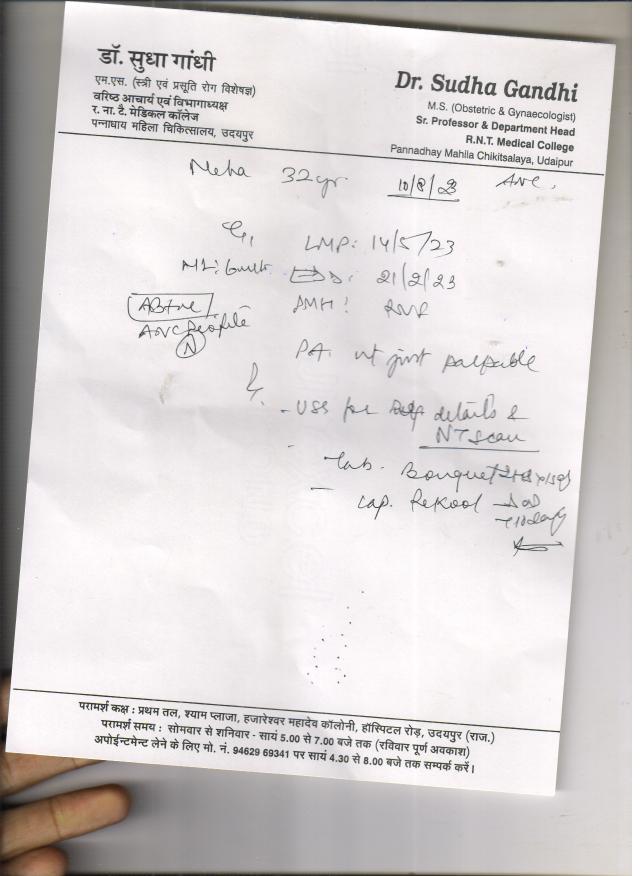 डॉ. सुधा गांधी
एम.एस. (स्त्री एवं प्रसूति रोग विशेषज्ञ)
वरिष्ठ आचार्य एवं विभागाध्यक्ष
र. ना. टै. मेडिकल कॉलेज
पन्नाधाय महिला चिकित्सालय, उदयपुर
Dr. Sudha Gandhi
M.S. (Obstetric & Gynaecologist)
Sr. Professor & Department Head
R.N.T. Medical College
Pannadhay Mahila Chikitsalaya, Udaipur
Neha 32yr 10/8/23 ANC.
G1 LMP: 14/5/23
ML: EDD: 21/2/23
AB+ve
ANC Profile
N
PA. ut just palpable
- USS for details &
NT Scan
- Tab. Bonquet
- Cap. Rekool OD
परामर्श कक्ष : प्रथम तल, श्याम प्लाजा, हजारेश्वर महादेव कॉलोनी, हॉस्पिटल रोड़, उदयपुर (राज.)
परामर्श समय : सोमवार से शनिवार - सायं 5.00 से 7.00 बजे तक (रविवार पूर्ण अवकाश)
अपोईन्टमेन्ट लेने के लिए मो. नं. 94629 69341 पर सायं 4.30 से 8.00 बजे तक सम्पर्क करें।